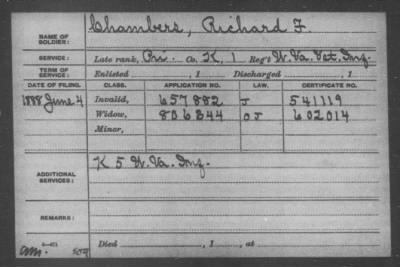 NAME OF SOLDIER: Chambers, Richard F.
SERVICE: Late rank, Pri. Co. K, 1 Reg't W. Va. Vet. Inf.
TERM OF SERVICE: Enlisted , 1 Discharged , 1
DATE OF FILING. CLASS. APPLICATION NO. LAW. CERTIFICATE NO.
1888 June 4 Invalid, 657882 J 541119
Widow, 806344 O J 602014
Minor,
ADDITIONAL SERVICES: K 5 W. Va. Inf.
REMARKS:
Died , 1 , at